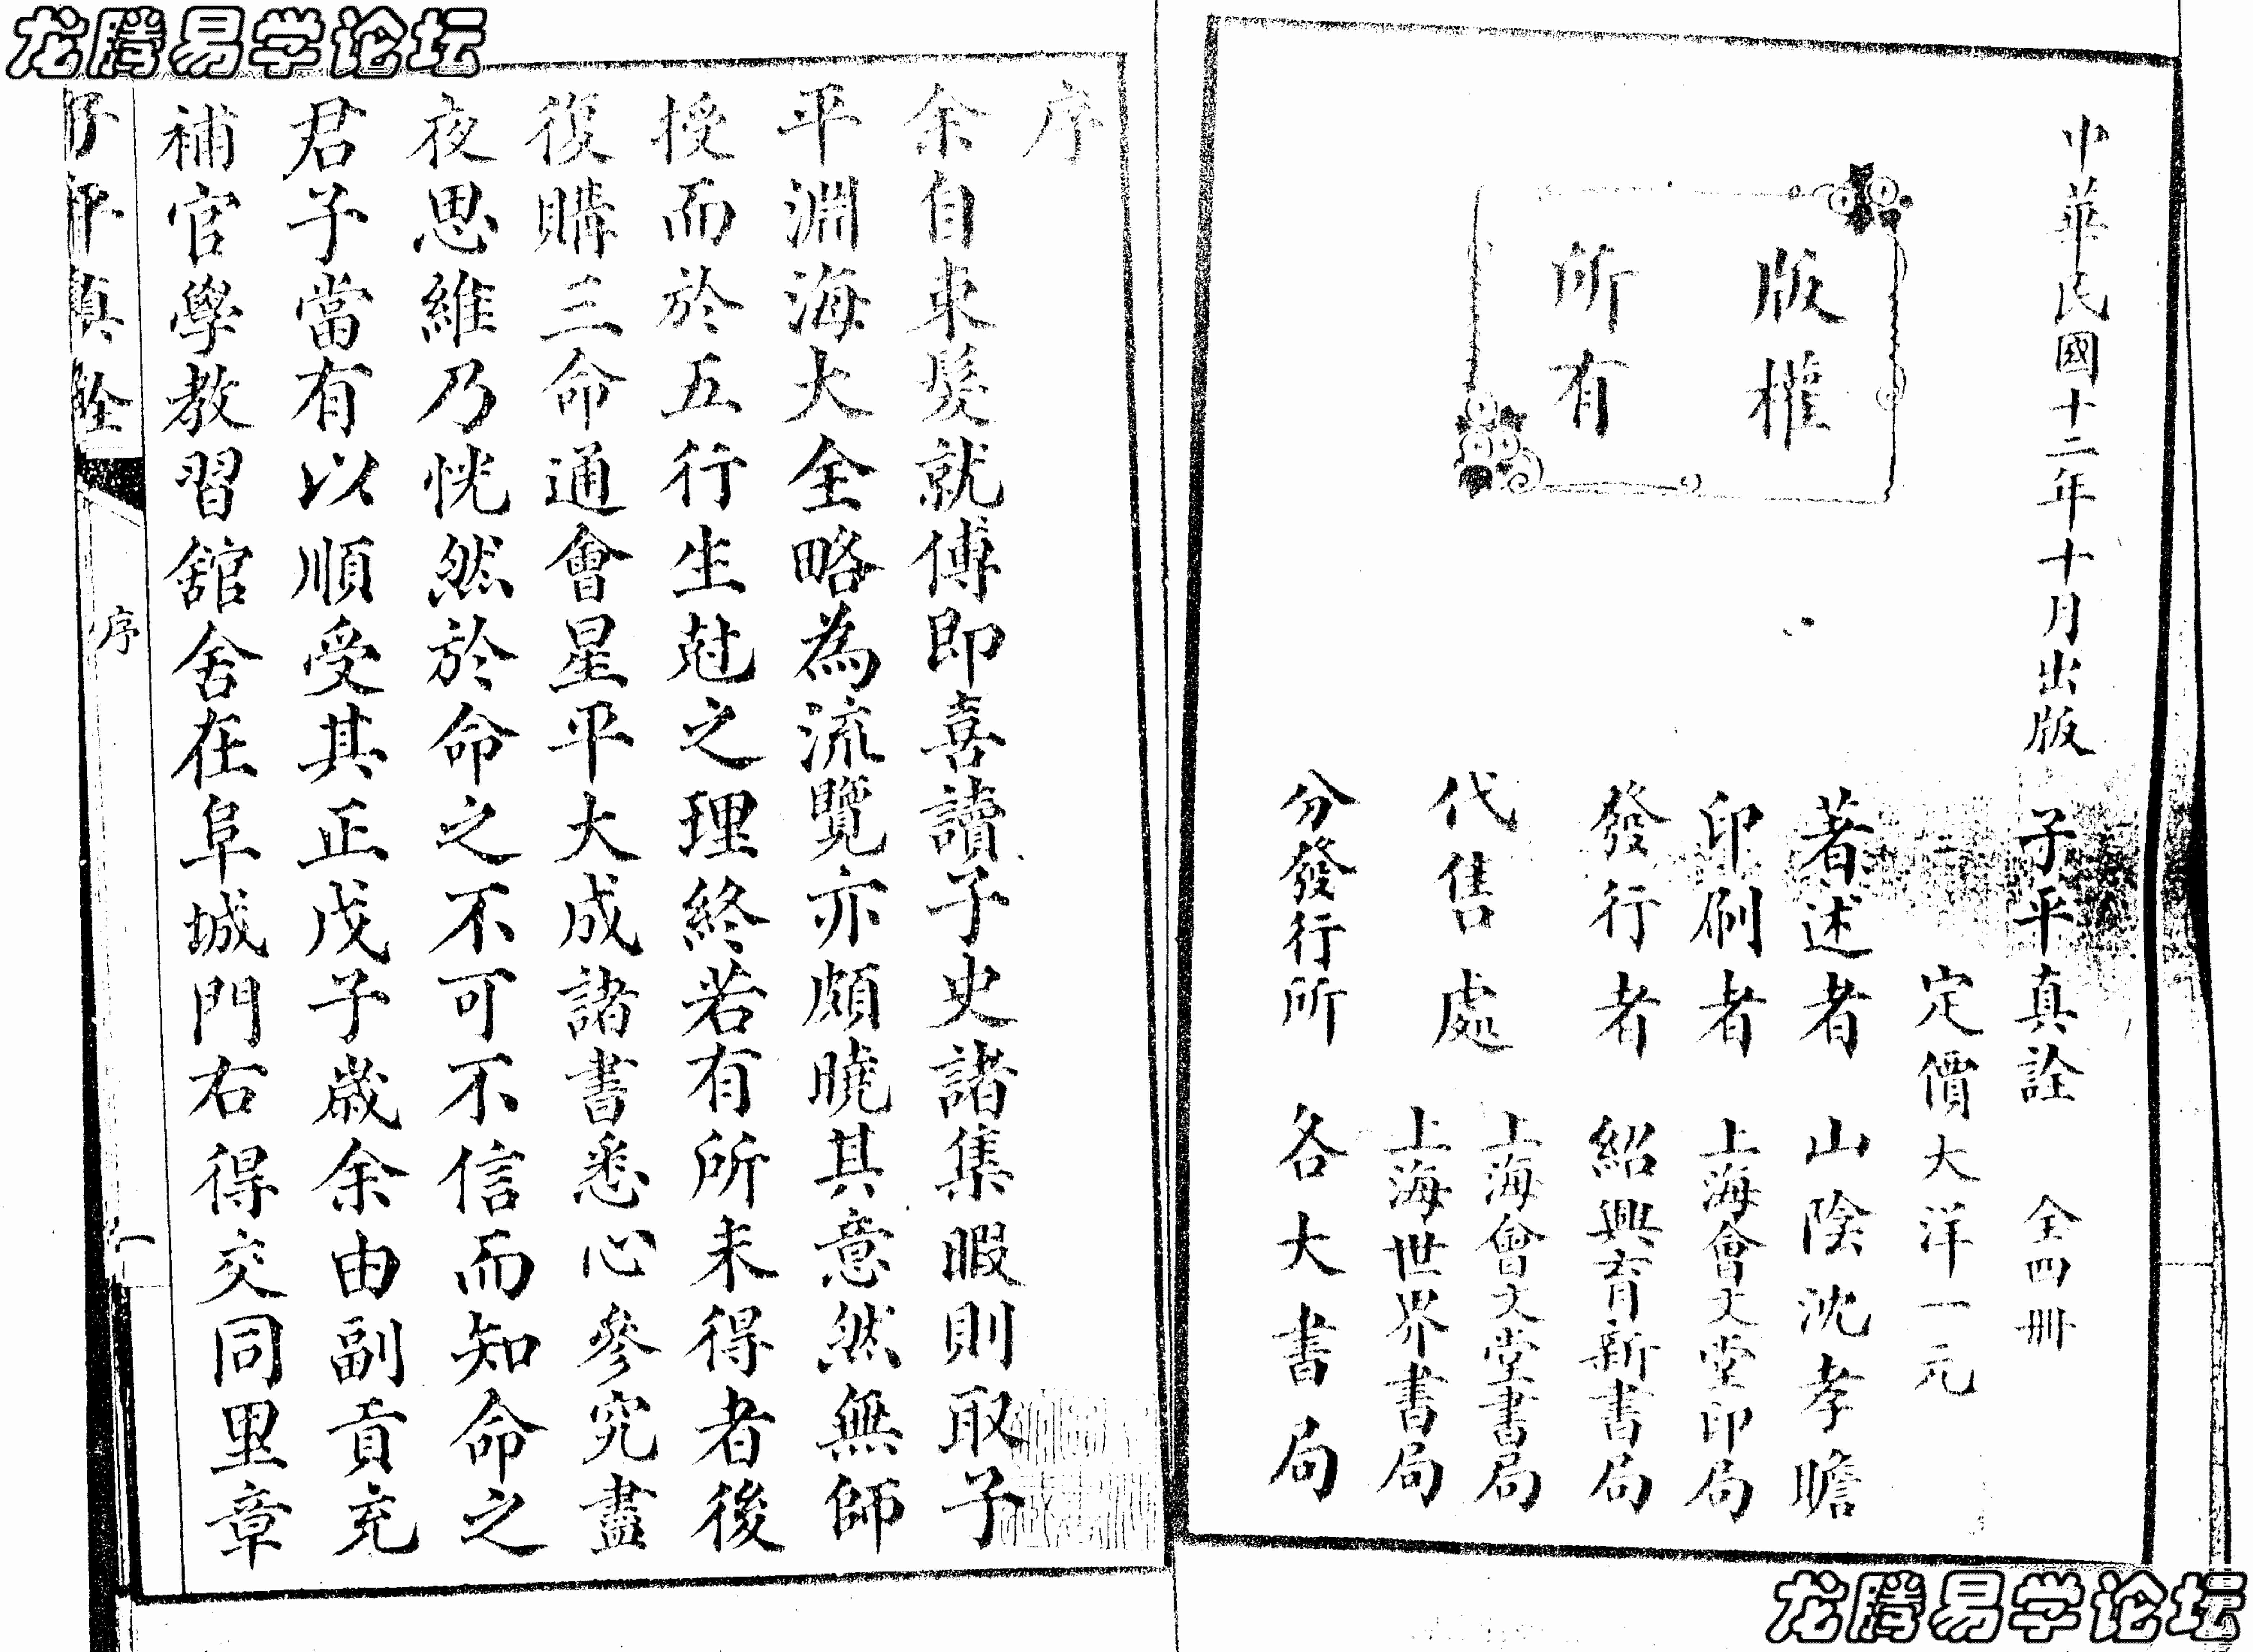 龙腾易学论坛
中華民國十二年十月出版
版權
所有
子平真詮 全四冊
定價大洋一元
著述者 山陰沈孝瞻
印刷者 上海會文堂印局
發行者 紹興育新書局
代售處 上海會文堂書局
上海世界書局
分發行所 各大書局
序
余自束髮就傅即喜讀子史諸集暇則取子
平淵海大全略為流覽亦頗曉其意然無師
授而於五行生尅之理終若有所未得者後
復購三命通會星平大成諸書悉心參究盡
夜思維乃恍然於命之不可不信而知命之
君子當有以順受其正戊子歲余由副貢充
補官學教習舘舍在阜城門右得交同里章
子平真詮 序 一
龙腾易学论坛